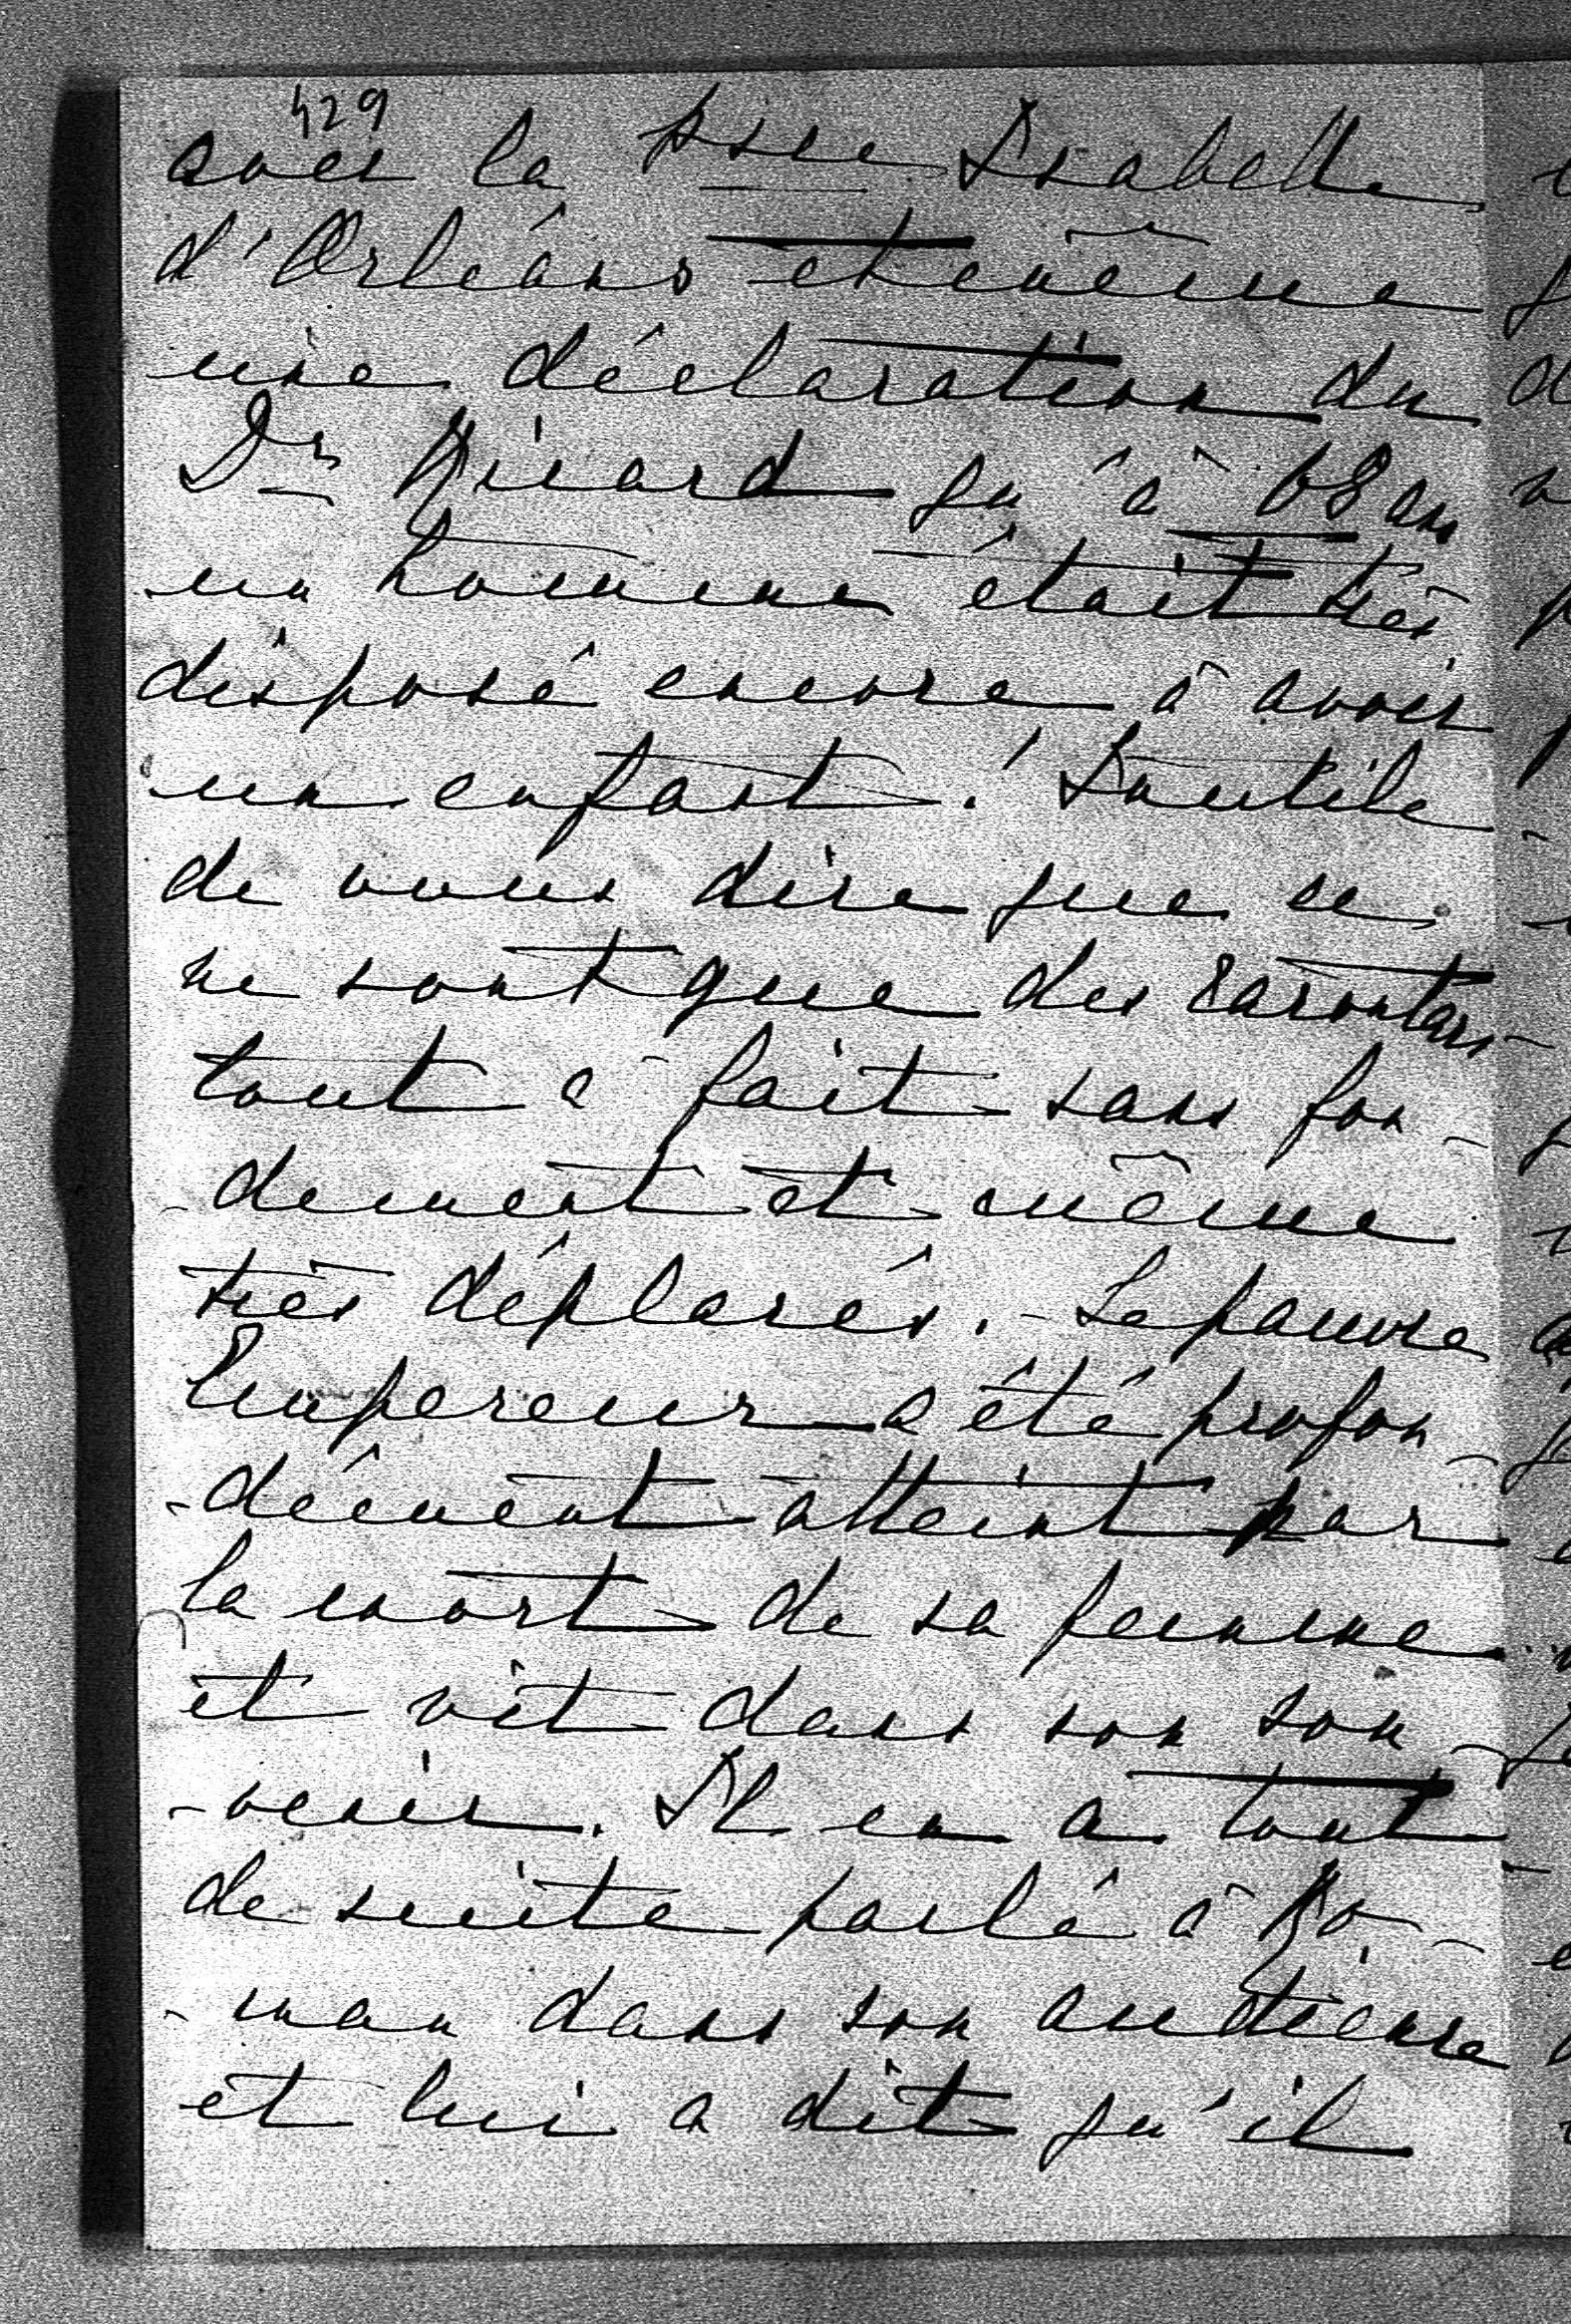 429
avec la Psse Isabelle
d'Orléans et même
une déclaration du
Dr Ricard qu'à 68 ans
un homme était très
disposé encore à avoir
un enfant! Inutile
de vous dire que ce
ne sont que des racontars
tout à fait sans fon-
-dement et même
très déplacés. - Le pauvre
Empereur a été profon-
-dément atteint par
la mort de sa femme
et vit dans son sou-
-venir. Il en a tout
de suite parlé à Ro-
-man dans son audience
et lui a dit qu'il